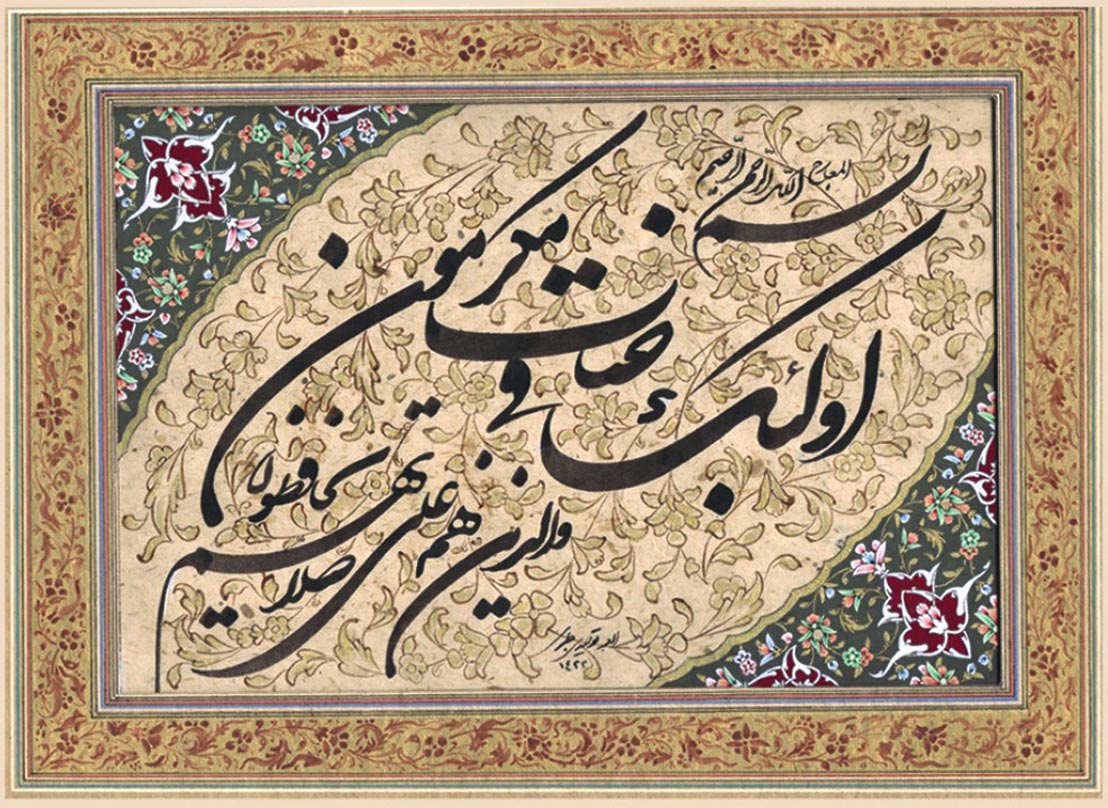 بسم الله الرحمن الرحیم
المعارج
اولئک فی جنات مکرمون
والذین هم علی صلاتهم یحافظون
العبد
۱۴۲۲